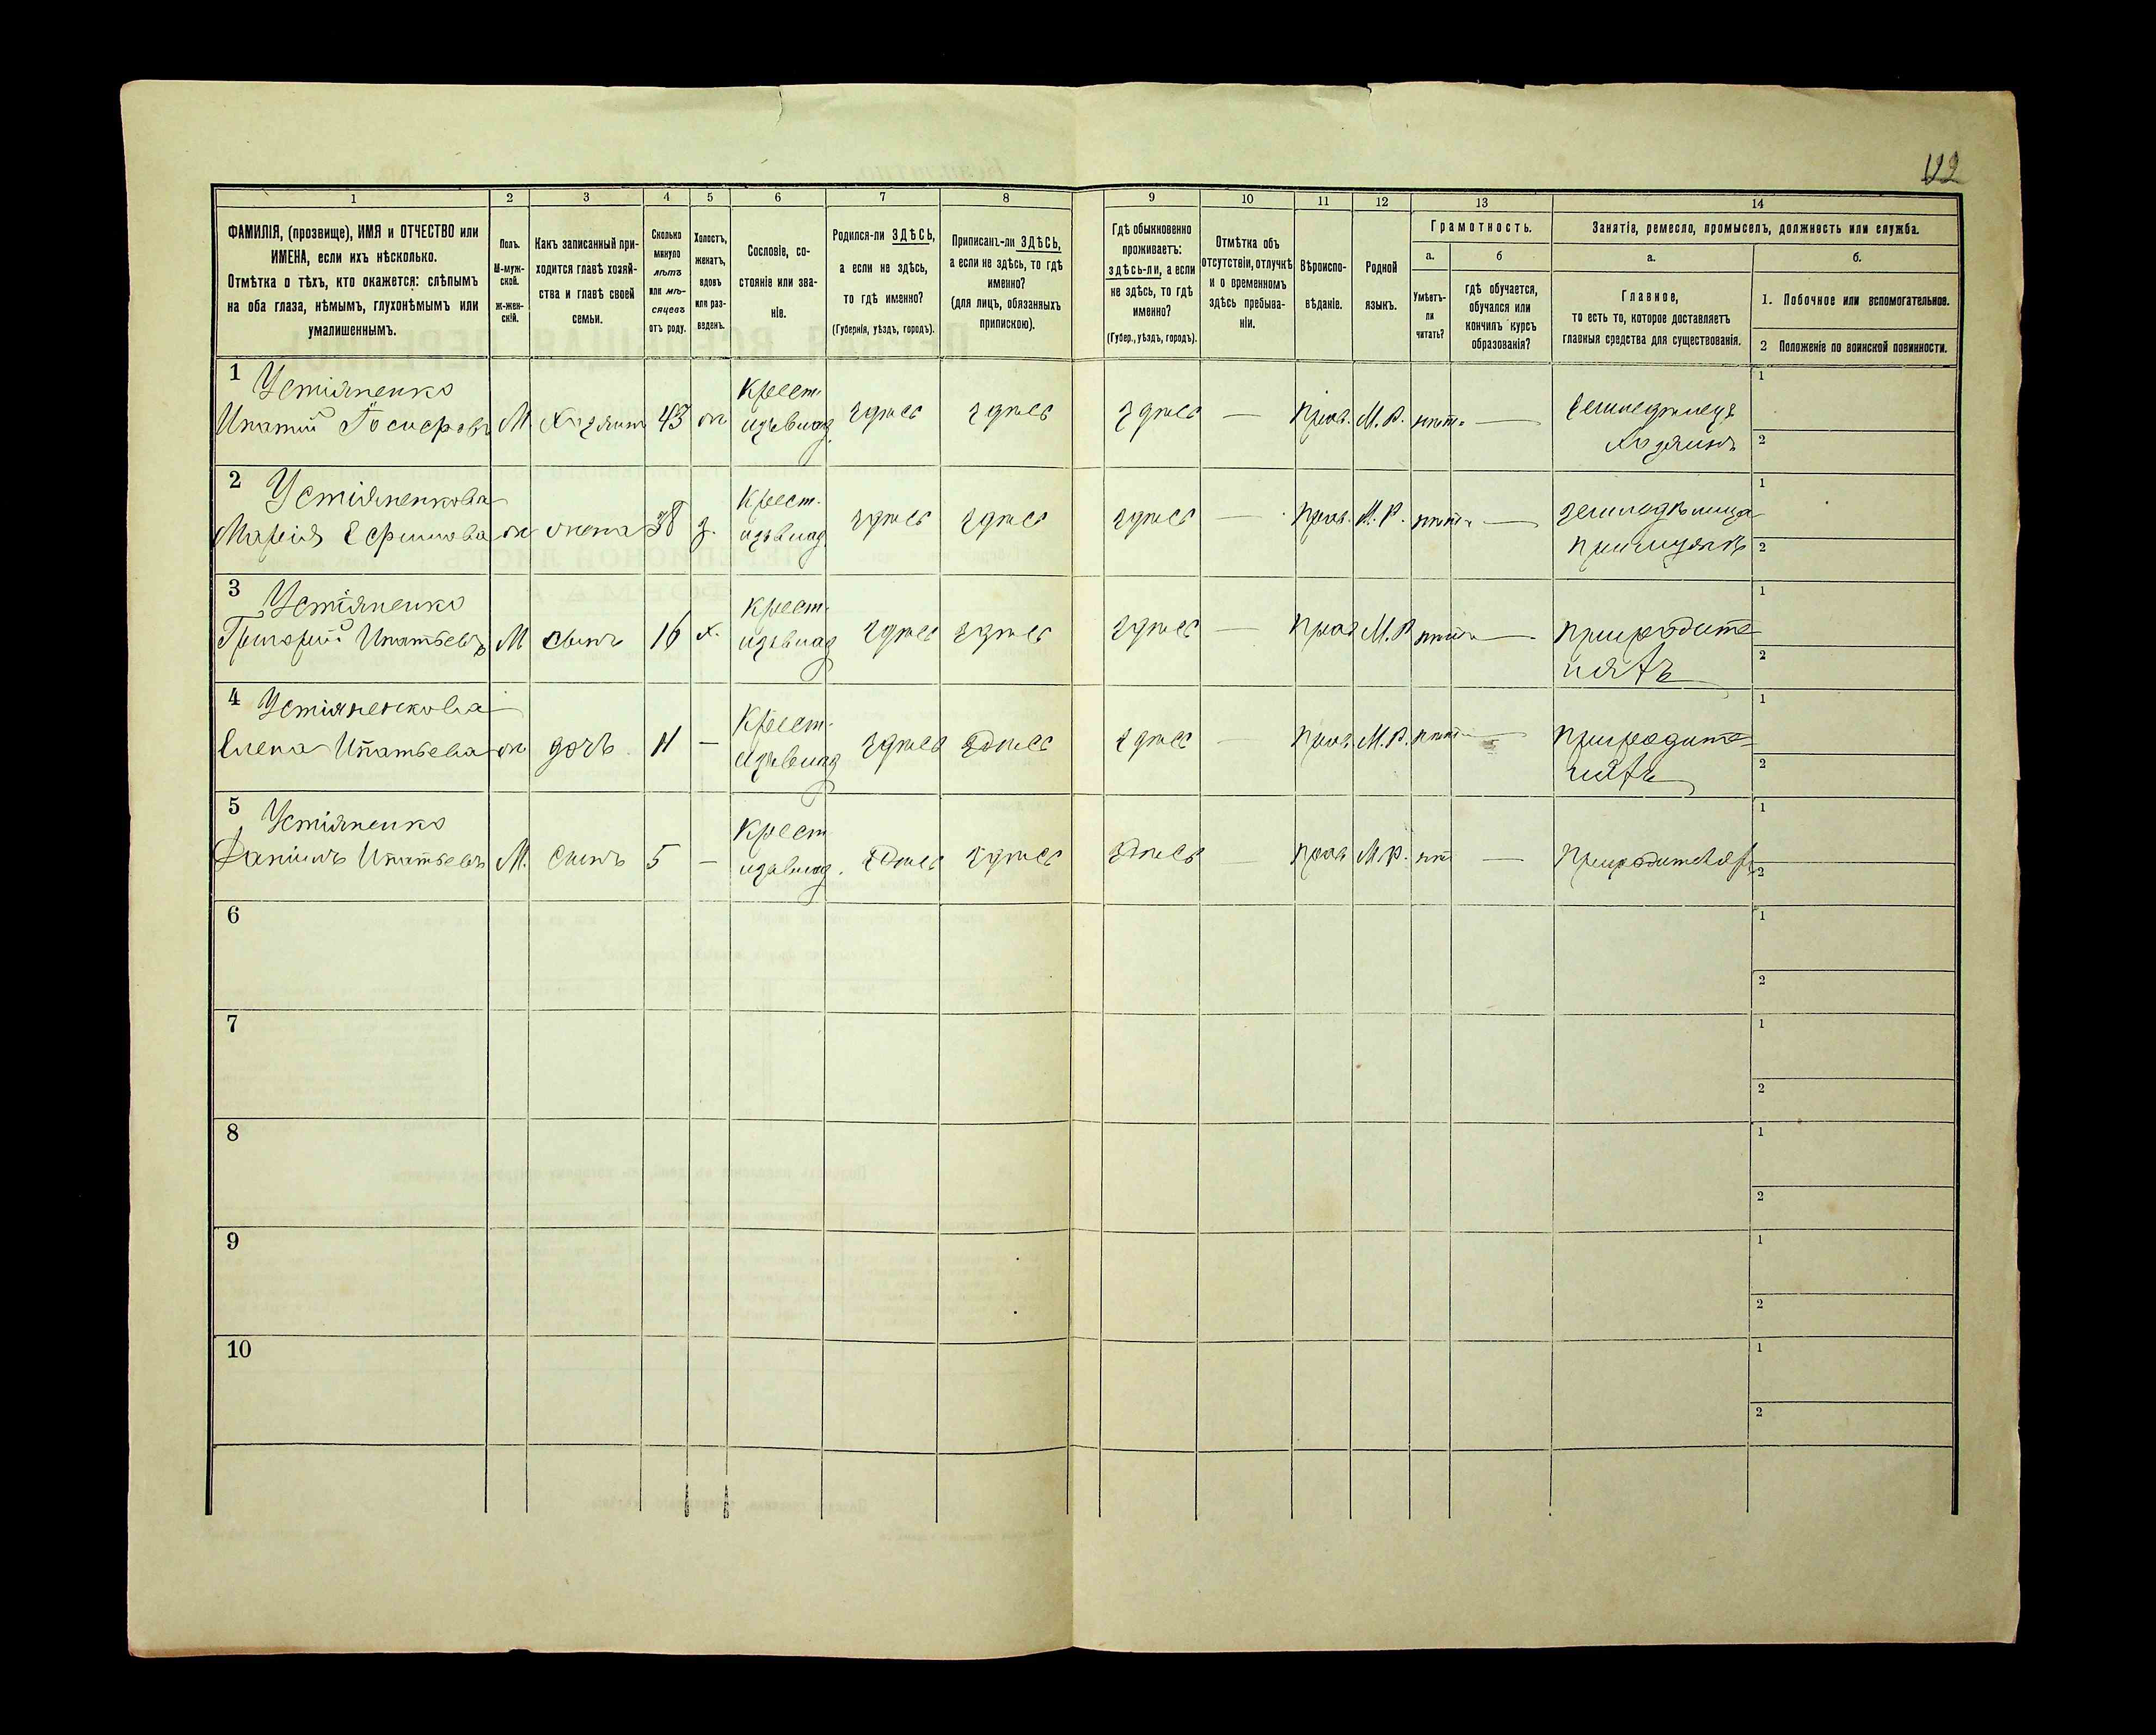 122
1 2 3 4 5 6 7 8 9 10 11 12 13 14
ФАМИЛІЯ, (прозвище), ИМЯ и ОТЧЕСТВО или
ИМЕНА, если ихъ нѣсколько.
Отмѣтка о тѣхъ, кто окажется: слѣпымъ
на оба глаза, нѣмымъ, глухонѣмымъ или
умалишеннымъ.
Полъ.
М-муж-
ской.
Ж-жен-
скій.
Какъ записанный при-
ходится главѣ хозяй-
ства и главѣ своей
семьи.
Сколько
минуло
лѣтъ
или мѣ-
сяцевъ
отъ роду.
Холостъ,
женатъ,
вдовъ
или раз-
веденъ.
Сословіе, со-
стояніе или зва-
ніе.
Родился-ли ЗДѢСЬ,
а если не здѣсь,
то гдѣ именно?
(Губернія, уѣздъ, городъ).
Приписанъ-ли ЗДѢСЬ,
а если не здѣсь, то гдѣ
именно?
(для лицъ, обязанныхъ
припискою).
Гдѣ обыкновенно
проживаетъ:
здѣсь-ли, а если
не здѣсь, то гдѣ
именно?
(Губер., уѣздъ, городъ).
Отмѣтка объ
отсутствіи, отлучкѣ
и о временномъ
здѣсь пребыва-
ніи.
Вѣроиспо-
вѣданіе.
Родной
языкъ.
Грамотность.
а.
Умѣетъ-
ли
читать?
б
гдѣ обучается,
обучался или
кончилъ курсъ
образованія?
Занятія, ремесло, промыселъ, должность или служба.
а.
Главное,
то есть то, которое доставляетъ
главныя средства для существованія.
б.
1. Побочное или вспомогательное.
2 Положеніе по воинской повинности.
1 Устіяненко Крест. земледѣлецъ 1
Ипатій Іосифовъ М. Хозяинъ 43 ж изъ влад. здѣсь здѣсь здѣсь — прав. М. Р. нѣтъ — хозяинъ 2
2 Устіяненкова Крест. земледѣлица 1
Марія Ефимова ж жена 38 з. изъ влад. здѣсь здѣсь здѣсь — прав. М. Р. нѣтъ — при мужѣ 2
3 Устіяненко Крест. 1
Григорій Ипатьевъ М сынъ 16 х. изъ влад здѣсь здѣсь здѣсь — прав М. Р нѣтъ — при родите 2
ляхъ
4 Устіяненкова Крест. 1
Елена Ипатьева ж дочь. 11 — изъ влад здѣсь здѣсь здѣсь — прав. М. Р. нѣтъ — при родите- 2
ляхъ
5 Устіяненко Крест 1
Даніилъ Ипатьевъ М. сынъ 5 — изъ влад. здѣсь здѣсь здѣсь прав М. Р. нѣт — при родителях 2
6 1
2
7 1
2
8 1
2
9 1
2
10 1
2